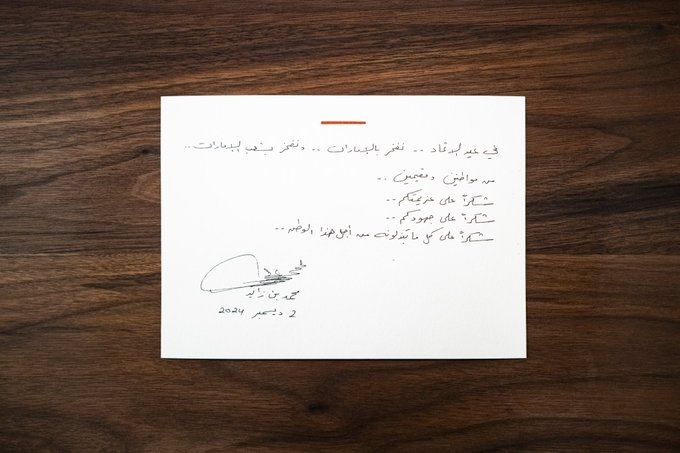 في عيد الاتحاد .. نفخر بالإمارات .. ونفخر بشعب الإمارات ..
من مواطنين ومقيمين ..
شكراً على عزيمتكم ..
شكراً على جهودكم ..
شكراً على كل ما تبذلونه من أجل هذا الوطن ..
محمد بن زايد
2 ديسمبر 2024